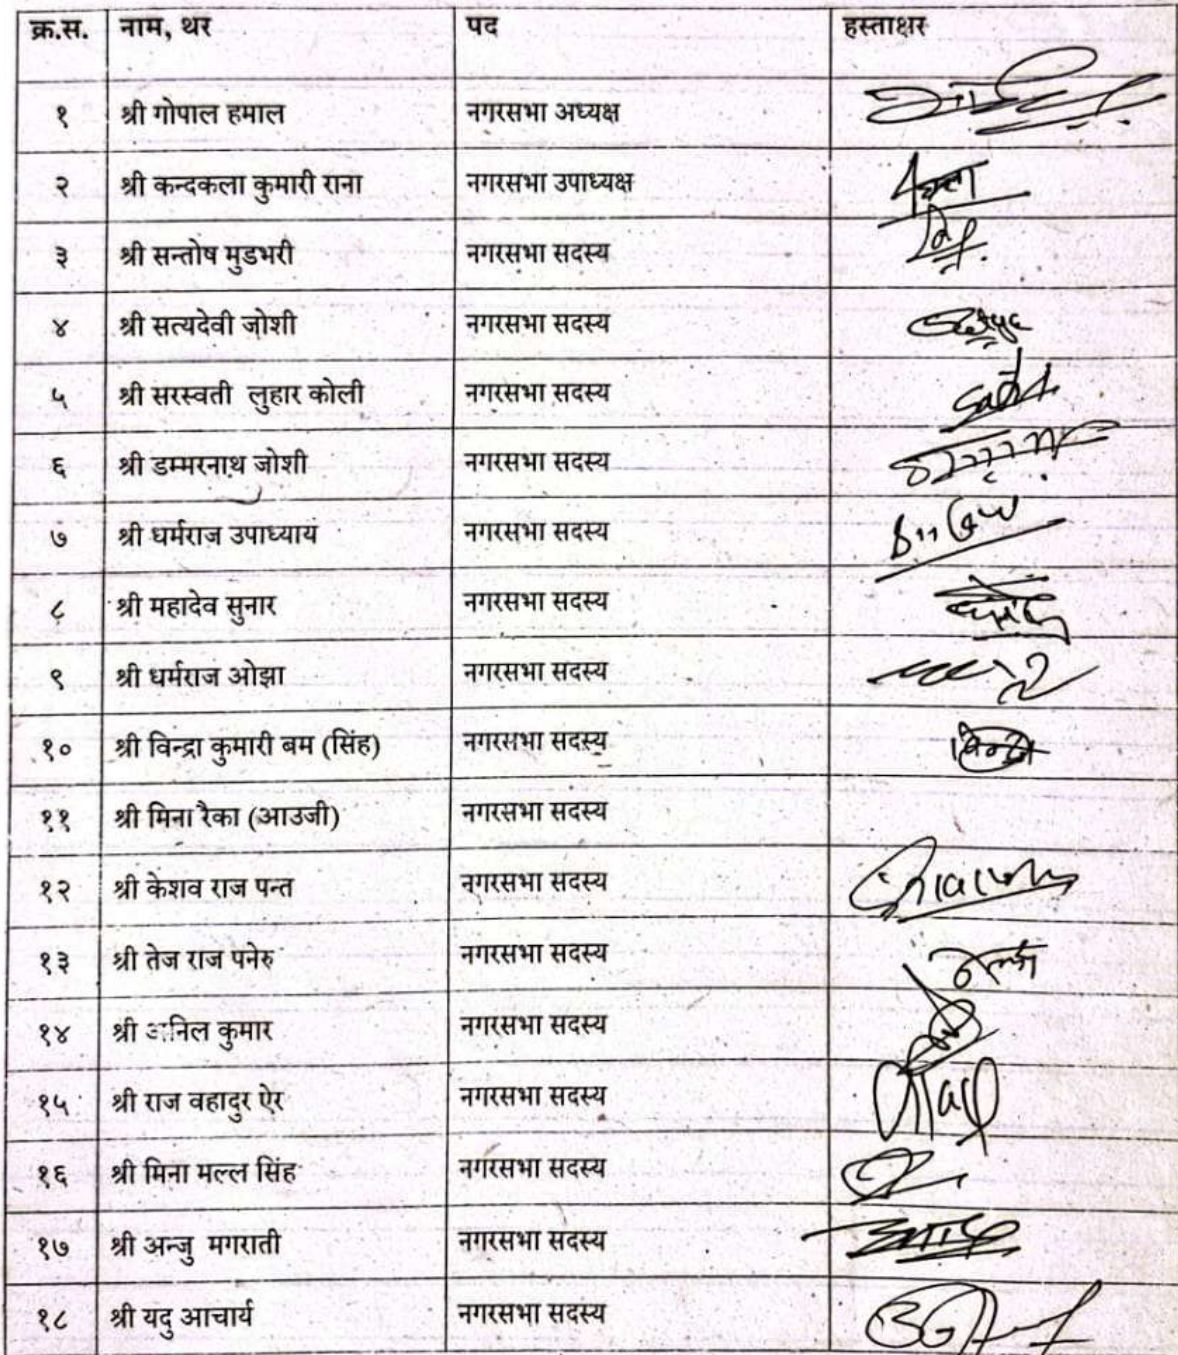 क्र.स. नाम, थर पद हस्ताक्षर
१ श्री गोपाल हमाल नगरसभा अध्यक्ष
२ श्री कन्दकला कुमारी राना नगरसभा उपाध्यक्ष
३ श्री सन्तोष मुडभरी नगरसभा सदस्य
४ श्री सत्यदेवी जोशी नगरसभा सदस्य
५ श्री सरस्वती लुहार कोली नगरसभा सदस्य
६ श्री डम्मरनाथ जोशी नगरसभा सदस्य
७ श्री धर्मराज उपाध्याय नगरसभा सदस्य
८ श्री महादेव सुनार नगरसभा सदस्य
९ श्री धर्मराज ओझा नगरसभा सदस्य
१० श्री विन्द्रा कुमारी बम (सिंह) नगरसभा सदस्य
११ श्री मिना रैका (आउजी) नगरसभा सदस्य
१२ श्री केशव राज पन्त नगरसभा सदस्य
१३ श्री तेज राज पनेरु नगरसभा सदस्य
१४ श्री अनिल कुमार नगरसभा सदस्य
१५ श्री राज वहादुर ऐर नगरसभा सदस्य
१६ श्री मिना मल्ल सिंह नगरसभा सदस्य
१७ श्री अन्जु मगराती नगरसभा सदस्य
१८ श्री यदु आचार्य नगरसभा सदस्य